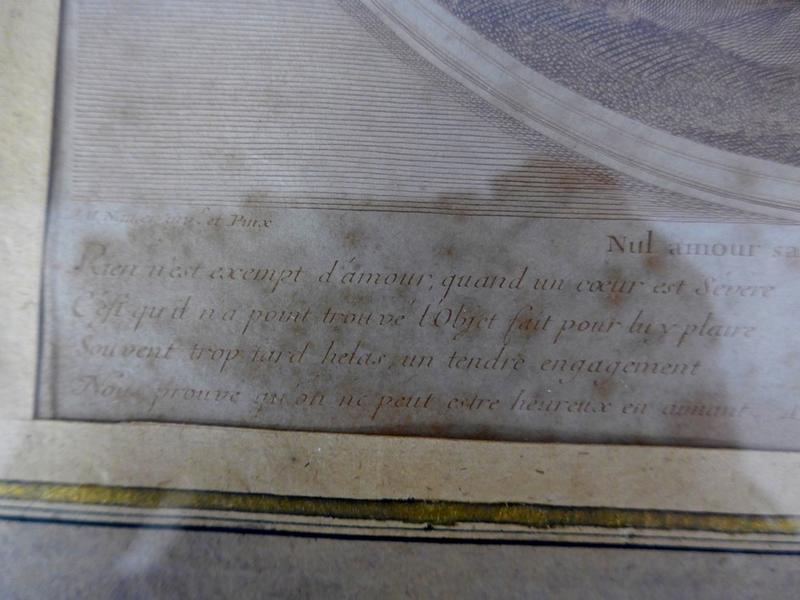 et Pinx
Nul amour sa
Rien n'est exempt d'amour, quand un cœur est Sévere
C'est qu'il n'a point trouvé l'Objet fait pour luy plaire
Souvent trop tard helas, un tendre engagement
Nous prouve qu'on ne peut estre heureux en aimant